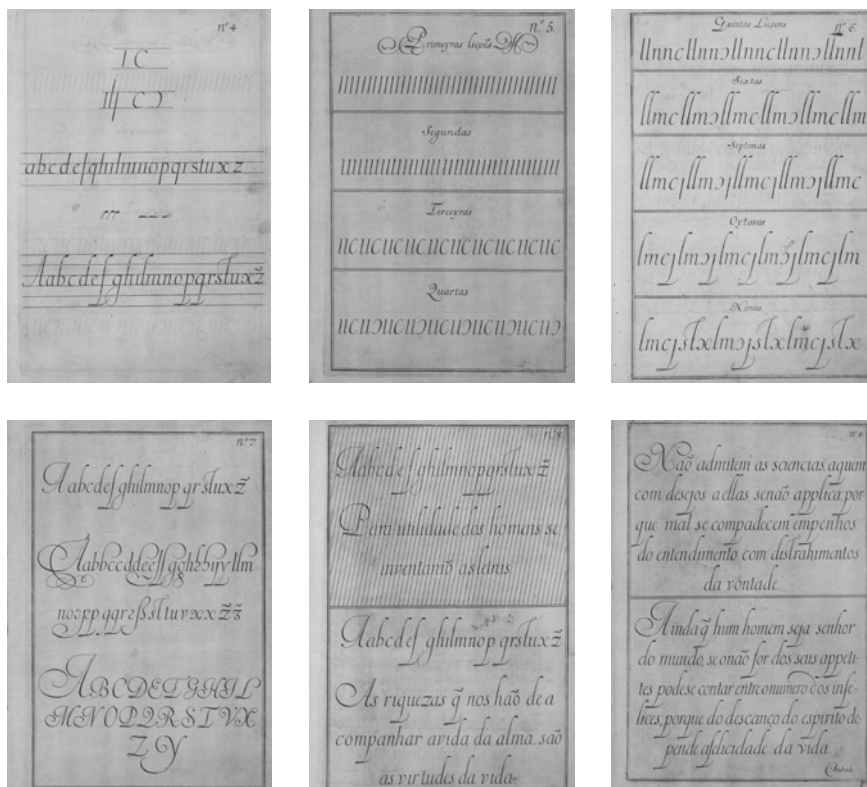 nº 4
I C
abcdefghilmnopqrstuxz
Aabcdefghilmnopqrstuxz̃
nº 5.
Primeyras liçoẽs
Segundas
Terceyras
ııcııcııcııcııcııcııcııcııcııc
Quartas
ııcııɔııcııɔııcııɔııcııɔııcııɔ
nº 6.
Quintas Liçoens
llnncllnnɔllnncllnnɔllnnl
Sextas
llmcllmɔllmcllmɔllmcllm
Septimas
llmcȷllmɔȷllmcȷllmɔȷllmc
Oytavas
lmcȷlmɔȷlmcȷlmɔȷlmcȷlm
Nonas
lmcȷstxlmɔȷstxlmcȷstx
nº 7.
Aabcdefghilmnopqrstuxz̃
ABCDEFGHIL
MNOPQRSTVX
ZY
nº 8.
Aabcdefghilmnopqrstuxz̃
Para utilidade dos homens se
inventarão as letras.
Aabcdefghilmnopqrstuxz̃
As riquezas q̃ nos haõ de a
companhar avida da alma, saõ
as virtudes da vida-
nº 9.
Naõ admitem as sciencias, aquem
com desejos a ellas senaõ applica, por
que mal se compadecem empenhos
do entendimento com distrahimentos
da vontade.
Ainda q̃ hum homem seja senhor
do mundo, se onaõ for dos seus appeti-
tes podese contar entre onumero dos infe-
lices, porque do descanço do espirito de-
pende afelicidade da vida.
Andrade